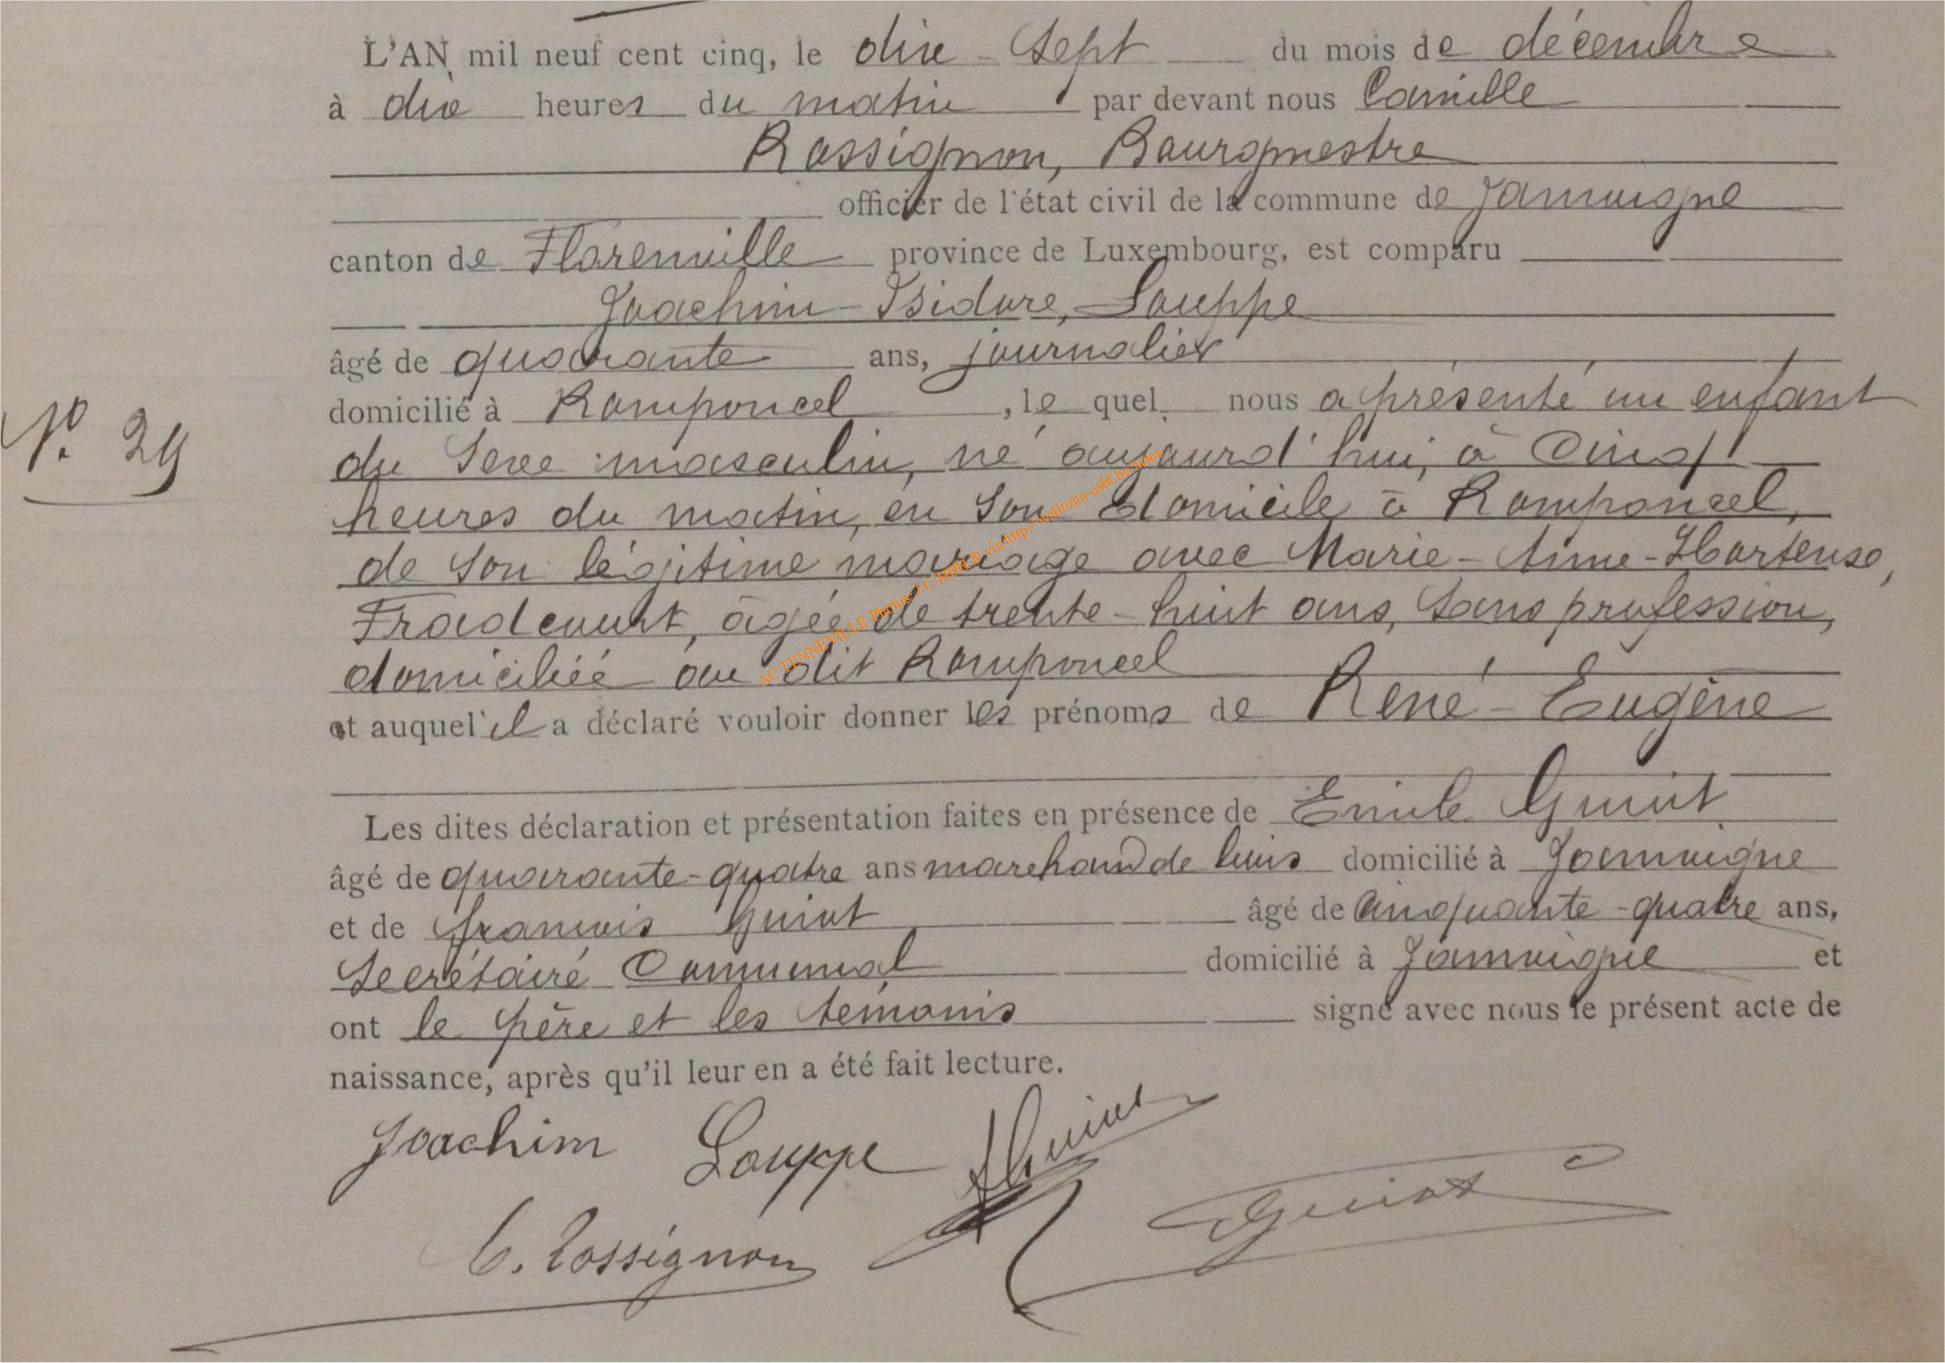 L'AN mil neuf cent cinq, le dix-sept du mois de décembre
à dix heures du matin par devant nous Camille
Rossignon, Bourgmestre
officier de l'état civil de la commune de Jamoigne
canton de Florenville province de Luxembourg, est comparu
Joachim-Isidore, Louppe
âgé de quarante ans, journalier
domicilié à Romponcel, le quel nous a présenté un enfant
N° 29
du sexe masculin, né aujourd'hui, à Cinq
heures du matin, en son domicile à Romponcel,
de son légitime mariage avec Marie-Aime-Hortense,
Fradcourt, âgée de trente-huit ans, sans profession,
domiciliée au dit Romponcel
et auquel il a déclaré vouloir donner les prénoms de René-Eugène
Les dites déclaration et présentation faites en présence de Emile Guiot
âgé de quarante-quatre ans marchand de bois domicilié à Jamoigne
et de François Guiot âgé de Cinquante-quatre ans,
Secrétaire Communal domicilié à Jamoigne et
ont le père et les témoins signé avec nous le présent acte de
naissance, après qu'il leur en a été fait lecture.
Joachim Louppe Guiot
C. Rossignon Guiot